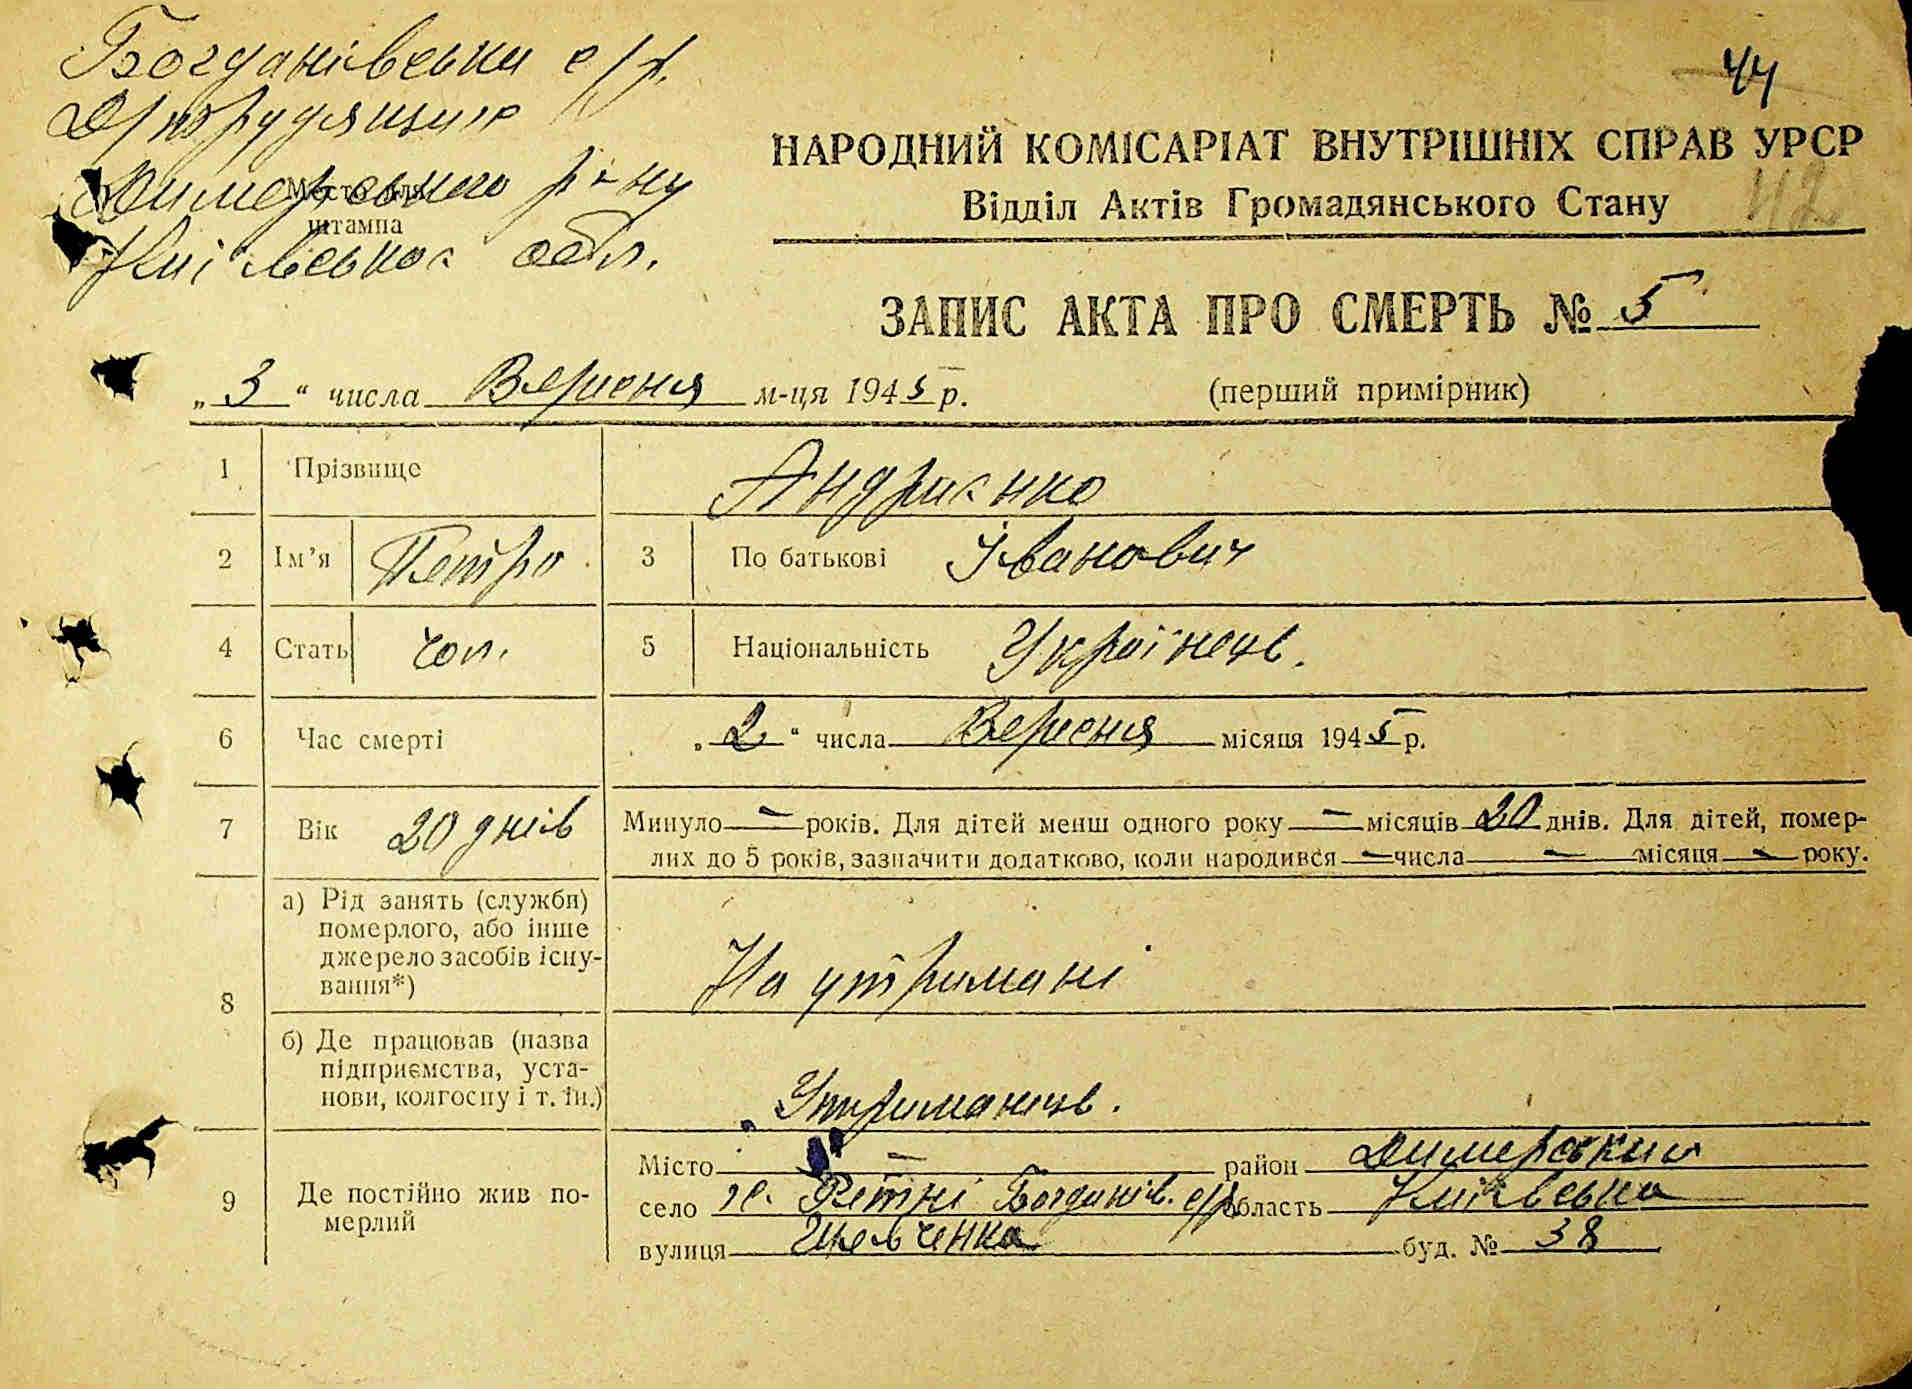 Богданівськи с/р.
44
НАРОДНИЙ КОМІСАРІАТ ВНУТРІШНІХ СПРАВ УРСР
Димерського р-ну
Місце для
штампа
Відділ Актів Громадянського Стану
42
Київської обл.
ЗАПИС АКТА ПРО СМЕРТЬ № 5
„3“ числа Вересня м-ця 1945 р. (перший примірник)
1 Прізвище Андриенко
2 Ім’я Петро 3 По батькові Іванович
4 Стать чол. 5 Національність Українець.
6 Час смерті „2“ числа Вересня місяця 1945 р.
7 Вік 20 днів Минуло — років. Для дітей менш одного року — місяців 20 днів. Для дітей, помер-
лих до 5 років, зазначити додатково, коли народився — числа — місяця — року.
8 а) Рід занять (служби)
померлого, або інше
джерело засобів існу-
вання*)
На утримані
б) Де працював (назва
підприємства, уста-
нови, колгоспу і т. ін.)
Утриманець.
9 Де постійно жив по-
мерлий
Місто — район Димерський
село Ретні Богданів. с/р область Київська
вулиця Шевченка буд. № 38